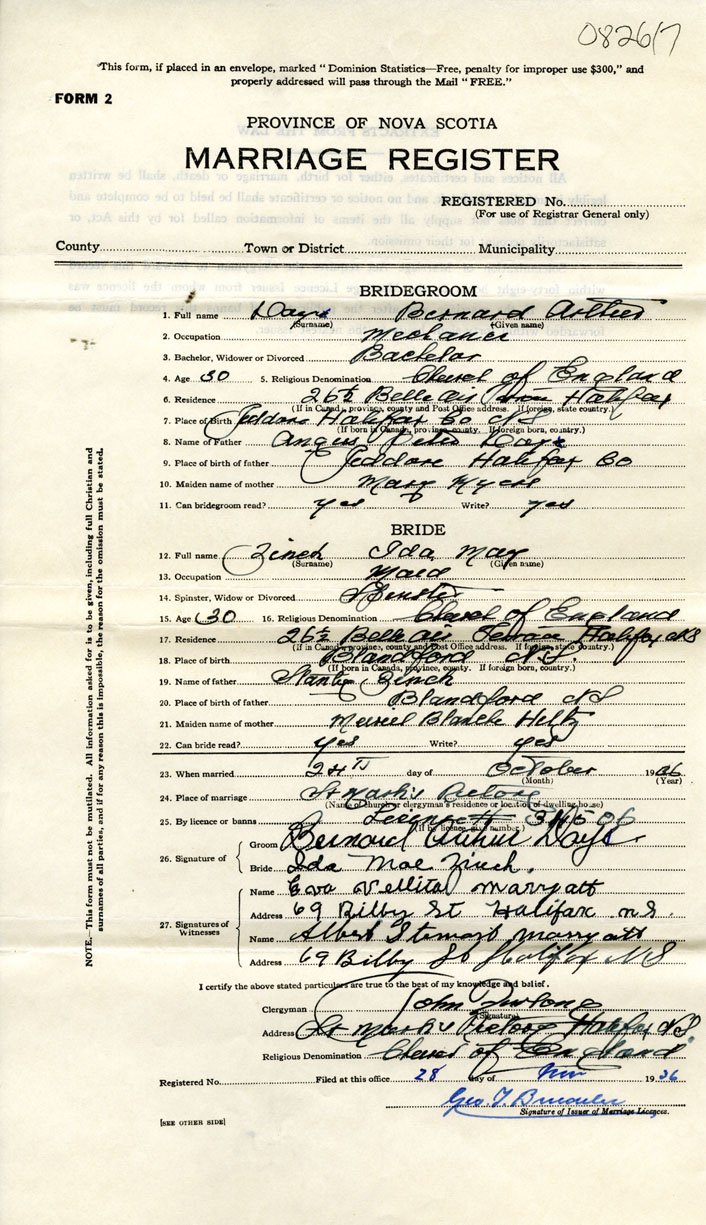 082617
"This form, if placed in an envelope, marked "Dominion Statistics—Free, penalty for improper use $300," and
properly addressed will pass through the Mail "FREE."
FORM 2
PROVINCE OF NOVA SCOTIA
MARRIAGE REGISTER
REGISTERED No.
(For use of Registrar General only)
County Town or District Municipality
BRIDEGROOM
1. Full name Bernard Arthur
(Surname) (Given name)
2. Occupation Mechanic
3. Bachelor, Widower or Divorced Bachelor
4. Age 30 5. Religious Denomination Church of England
6. Residence 26½ Belle Air Halifax
(If in Canada, province, county and Post Office address. If foreign, state country.)
7. Place of Birth Jeddore Halifax Co NS
(If born in Canada, province, county. If foreign born, country.)
8. Name of Father Angus Peter
9. Place of birth of father Jeddore Halifax Co
10. Maiden name of mother Mary Myers
11. Can bridegroom read? yes Write? yes
BRIDE
12. Full name Zinck Ida May
(Surname) (Given name)
13. Occupation Maid
14. Spinster, Widow or Divorced Spinster
15. Age 30 16. Religious Denomination Church of England
17. Residence 26½ Belle Air Terrace Halifax NS
(If in Canada, province, county and Post Office address. If foreign, state country.)
18. Place of birth Blandford N.S.
(If born in Canada, province, county. If foreign born, country.)
19. Name of father Zinck
20. Place of birth of father Blandford NS
21. Maiden name of mother Muriel Blanche Hiltz
22. Can bride read? yes Write? yes
23. When married 24th day of October 19
(Month) (Year)
24. Place of marriage St Mark's Rectory
(Name of church or clergyman's residence or location of dwelling house)
25. By licence or banns Licence
(If by licence, give number)
26. Signature of Groom Bernard Arthur
Bride Ida Mae Zinck.
27. Signatures of Witnesses Name Eva Vellita Marryatt
Address 69 Bilby St Halifax N.S.
Name Albert Stewart Marryatt
Address 69 Bilby St Halifax N.S
I certify the above stated particulars are true to the best of my knowledge and belief.
Clergyman John
(Signature)
Address St Mark's Rectory Halifax NS
Religious Denomination Church of England
Registered No. Filed at this office 28 day of Nov 1936
Geo. T.
Signature of Issuer of Marriage Licences.
[SEE OTHER SIDE]
NOTE.—This form must not be mutilated. All information asked for is to be given, including full Christian and
surnames of all parties, and if for any reason this is impossible, the reason for the omission must be stated.